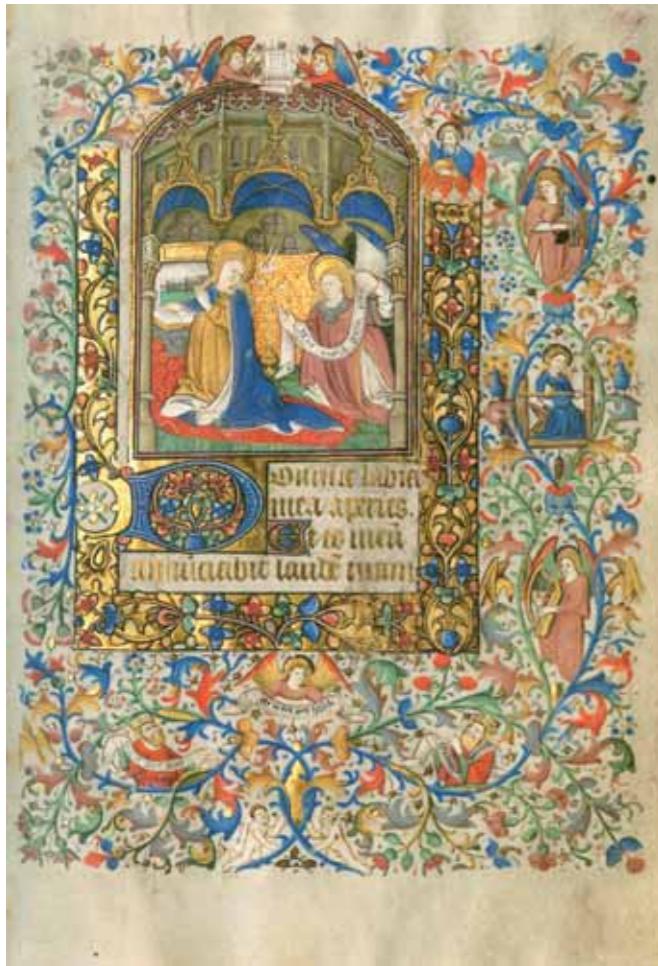 Domine labia
mea aperies.
Et os meū
annunciabit laudē tuam